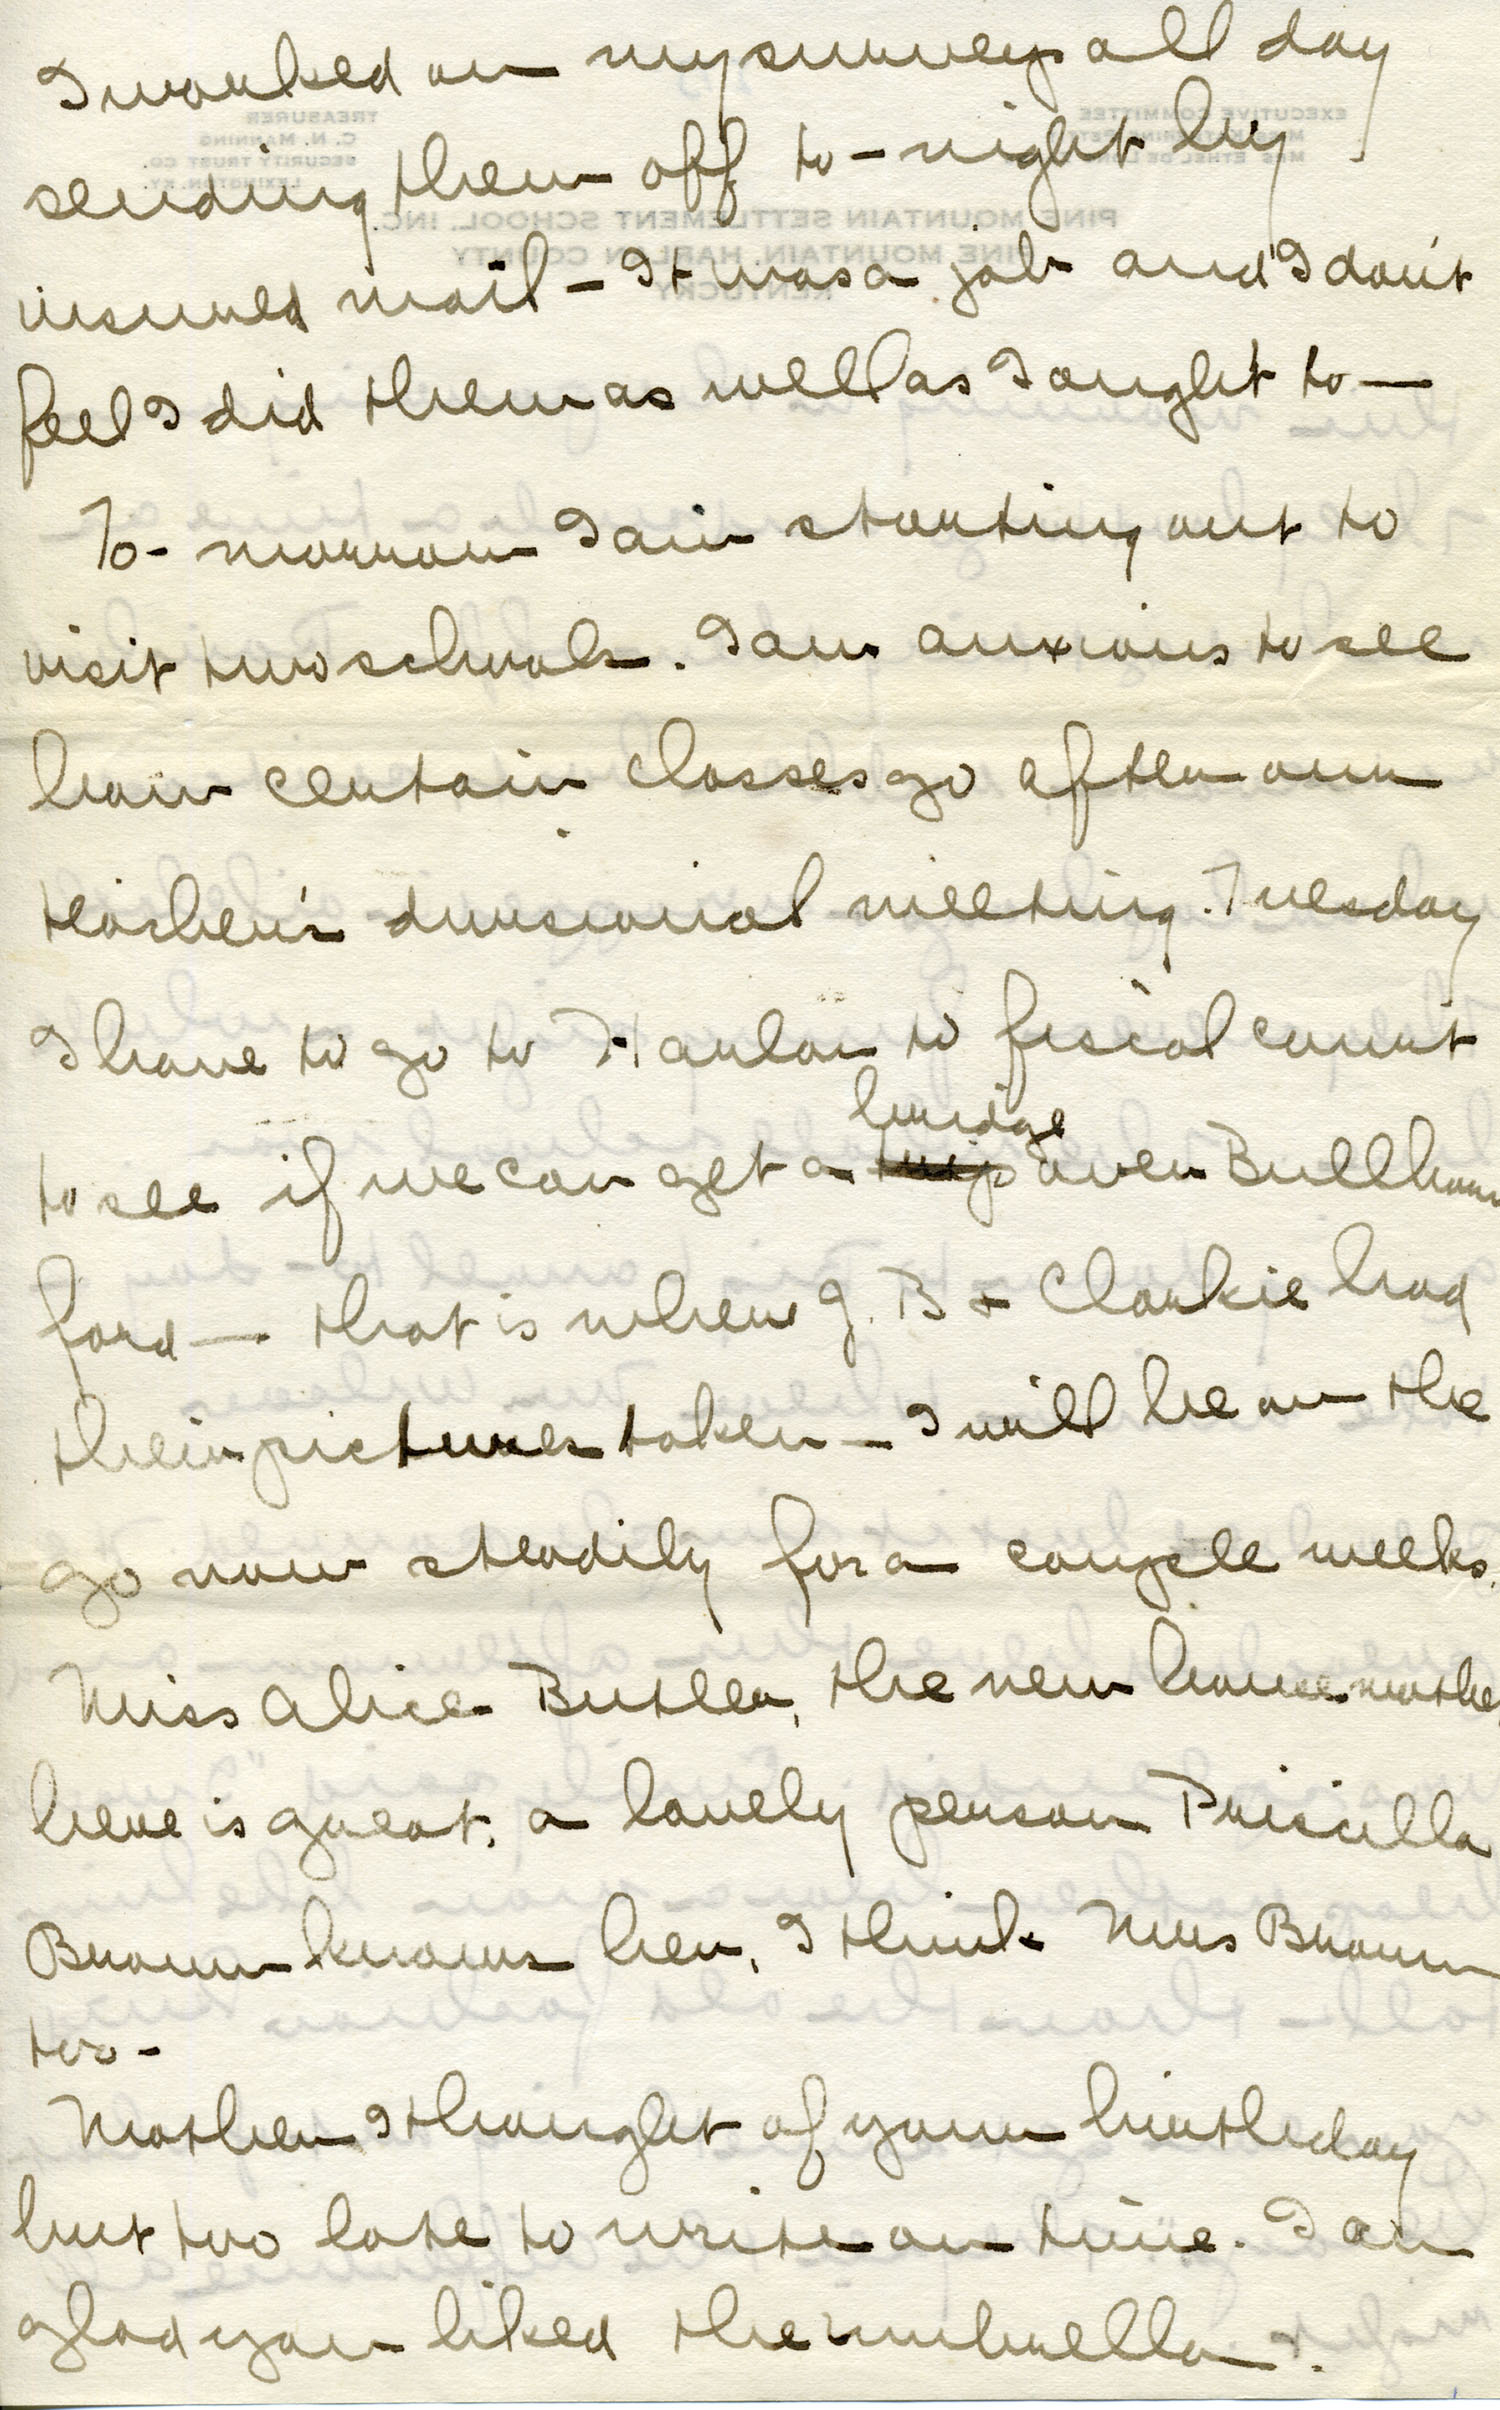 I worked on my surveys all day
sending them off to-night by
insured mail - It was a job and I don't
feel I did them as well as I ought to -
To-morrow I am starting out to
visit two schools. I am anxious to see
how certain classes go after our
teacher's divisional meeting. Tuesday
I have to go to Harlan to fiscal court
bridge
to see if we can get a over Bullhorn
ford - that is where J. B & Clarkie had
their pictures taken - I will be on the
go now steadily for a couple weeks.
Miss Alice Butler, the new house mother
here is great, a lovely person Priscilla
Brown knows her, I think Mrs Brown
too -
Mother I thought of your birthday
but too late to write on time. I am
glad you liked the umbrella +.
EXECUTIVE COMMITTEE
TREASURER
C. N. MANNING
SECURITY TRUST CO.
LEXINGTON, KY.
PINE MOUNTAIN SETTLEMENT SCHOOL. INC.
PINE MOUNTAIN, HARLAN COUNTY
KENTUCKY